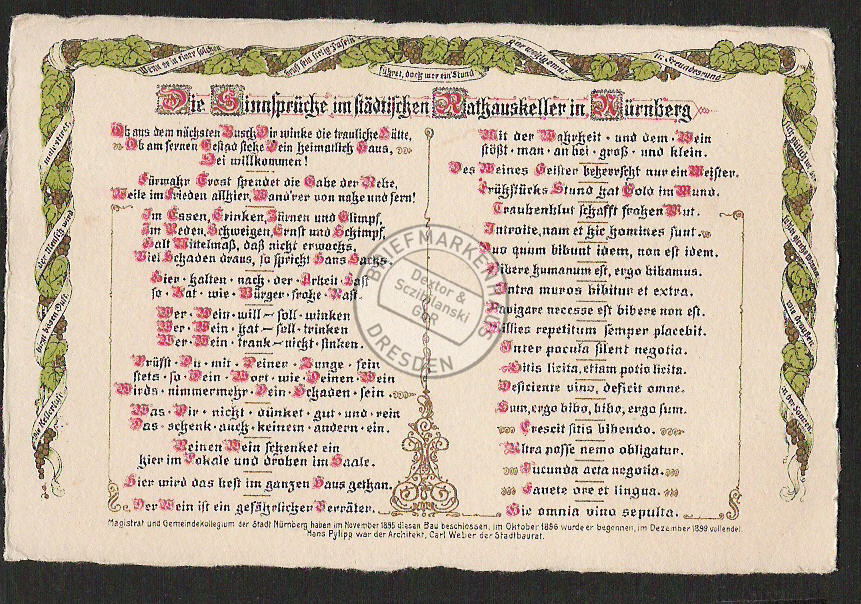 Die Sinnsprüche im städtischen Rathauskeller in Nürnberg
Ob aus dem nächsten Busch Dir winke die trauliche Hütte,
Ob am fernen Gestad stehe Dein heimatlich Haus,
Sei willkommen!
Fürwahr Trost spendet die Gabe der Rebe,
Weile im Frieden allhier, Wand'rer von nahe und fern!
Im Essen, Trinken, Zürnen und Glimpf,
Im Reden, Schweigen, Ernst und Schimpf,
Halt Mittelmaß, daß nicht erwachs,
Viel Schaden draus, so spricht Hans Sachs.
Hier · halten · nach · der · Arbeit · Last
so · Rat · wie · Bürger · frohe · Rast.
Wer · Wein · will – soll · winken
Wer · Wein · hat – soll · trinken
Wer · Wein · trank – nicht · sinken.
Prüfst · Du · mit · Deiner · Zunge · fein
stets · so · Dein · Wort · wie · Deinen · Wein
Wirds · nimmermehr · Dein · Schaden · sein.
Was · Dir · nicht · dünket · gut · und · rein
Das · schenk · auch · keinem · andern · ein.
Reinen Wein schenket ein
hier im Lokale und droben im Saale.
Hier wird das best im ganzen Haus gethan.
Der Wein ist ein gefährlicher Verräter.
Mit der Wahrheit · und dem · Wein
stößt · man · an bei · groß · und klein.
Des Weines Geister beherrscht nur ein Meister.
Frühstücks Stund hat Gold im Mund.
Traubenblut schafft frohen Mut.
Introite, nam et hic homines sunt.
Duo quum bibunt idem, non est idem.
Bibere humanum est, ergo bibamus.
Intra muros bibitur et extra.
Navigare necesse est bibere non est.
Millies repetitum semper placebit.
Inter pocula silent negotia.
Sitis licita, etiam potio licita.
Deficiente vino, deficit omne.
Sum, ergo bibo, bibo, ergo sum.
Crescit sitis bibendo.
Ultra posse nemo obligatur.
Jucunda acta negotia.
Favete ore et lingua.
Hic omnia vino sepulta.
Magistrat und Gemeindekollegium der Stadt Nürnberg haben im November 1895 diesen Bau beschlossen, im Oktober 1896 wurde er begonnen, im Dezember 1899 vollendet
Hans Pylipp war der Architekt, Carl Weber der Stadtbaurat.
BRIEFMARKENHAUS
Dextor &
Sczibilanski
GbR
DRESDEN